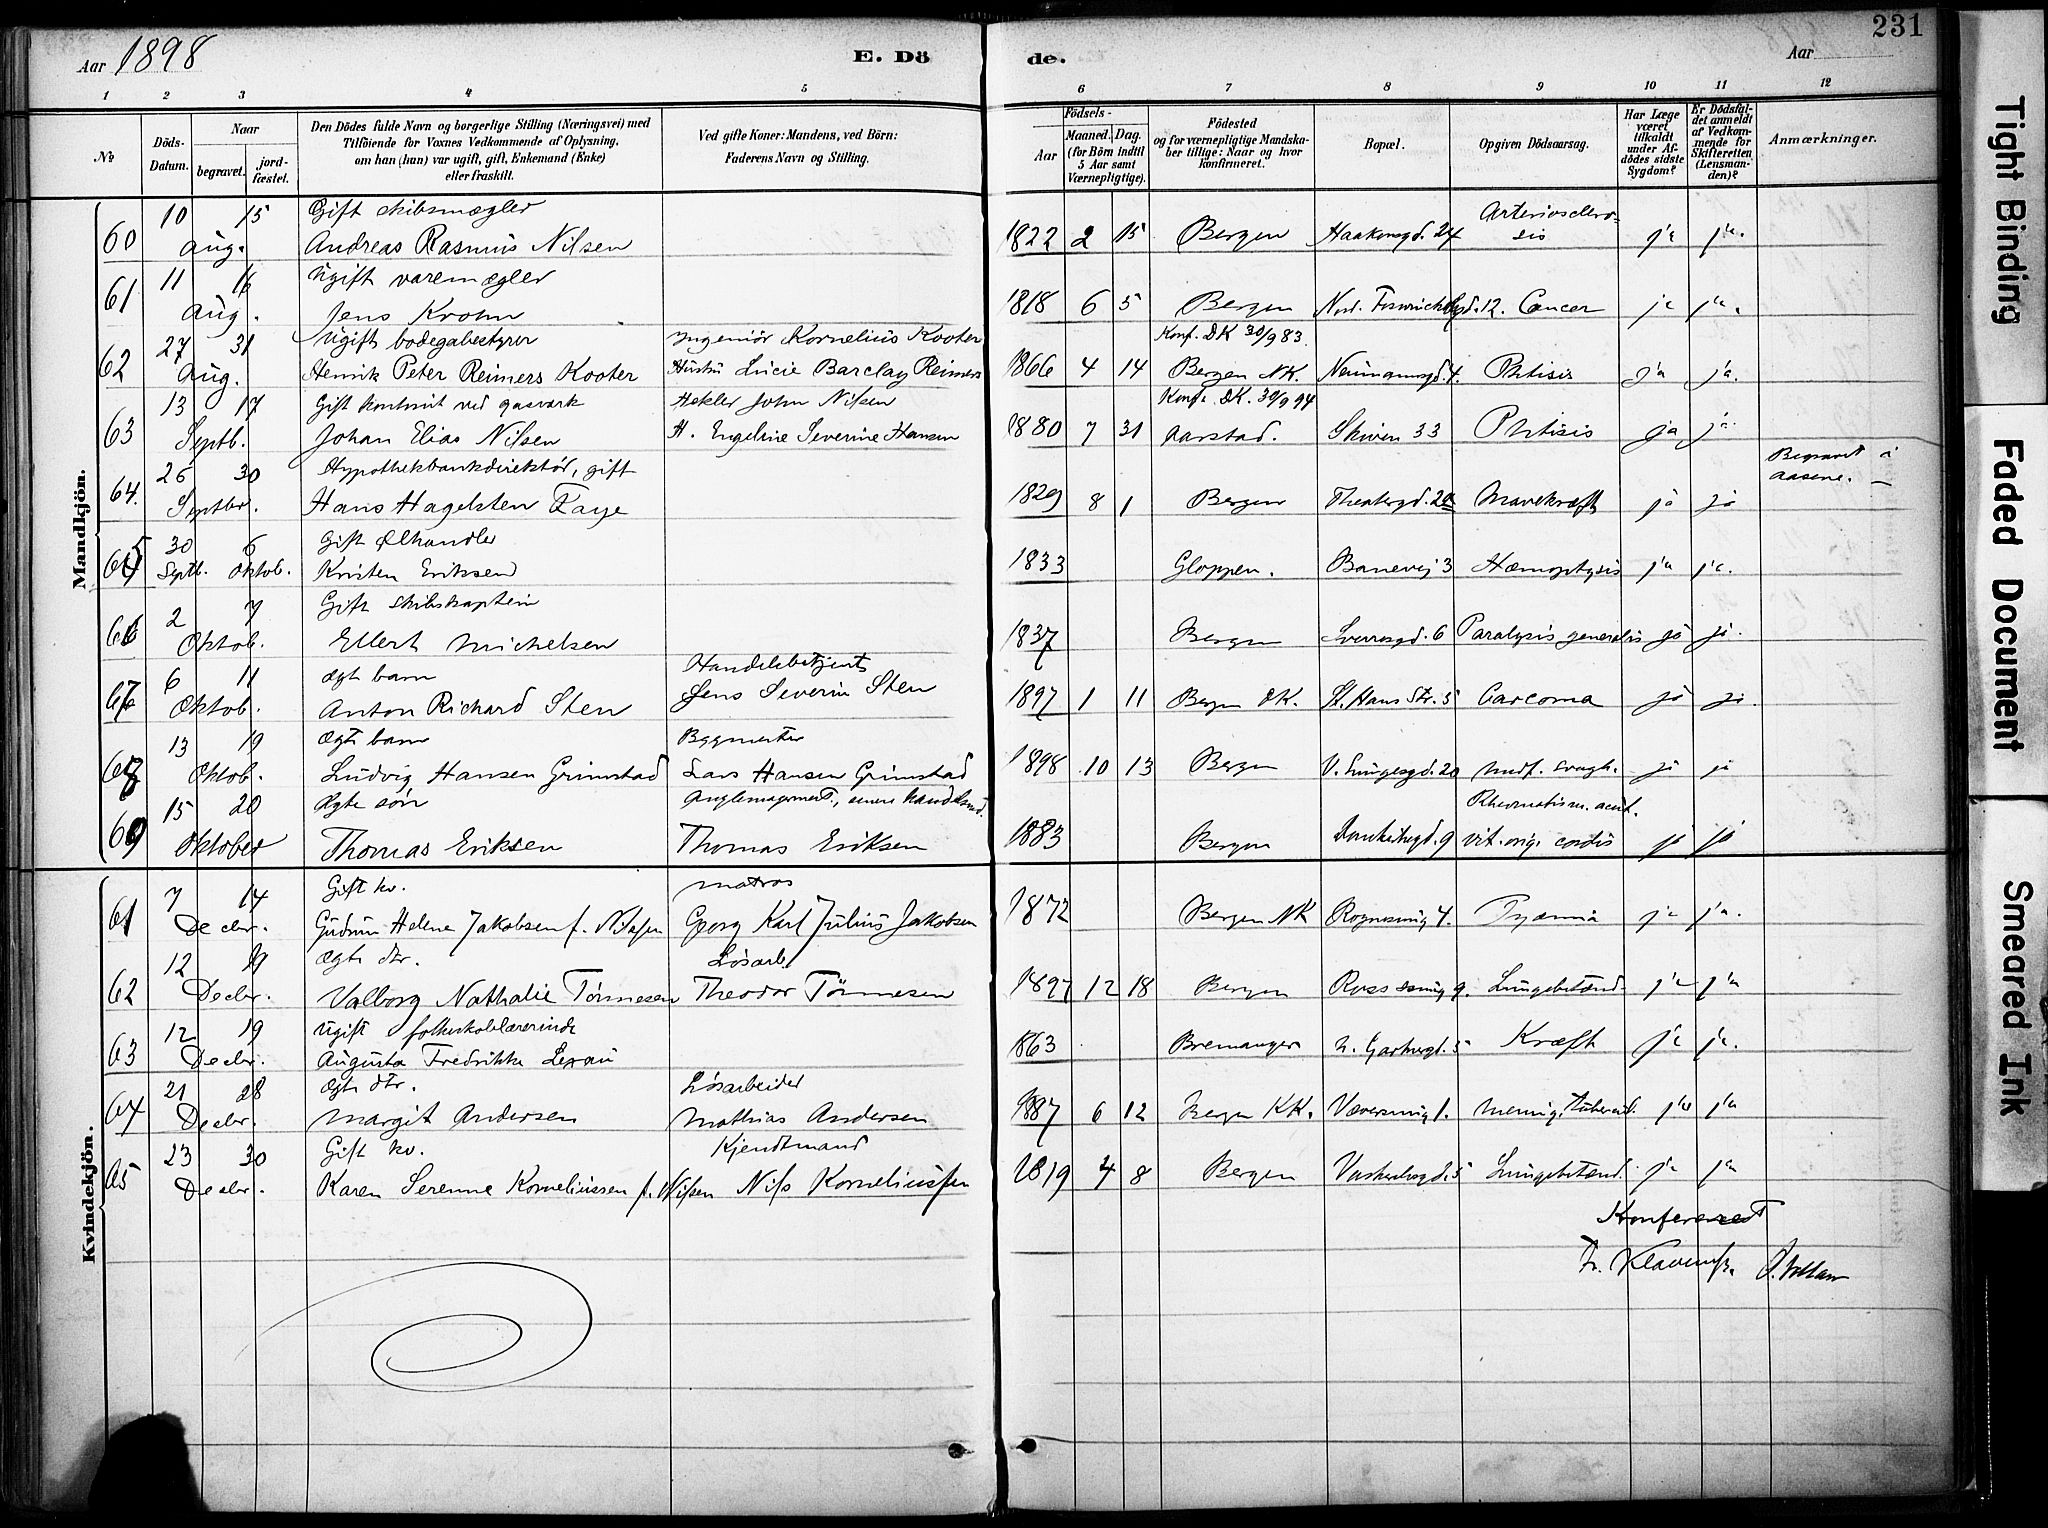 231
Aar 1898
E. Döde.
Aar
1 2 3 4 5 6 7 8 9 10 11 12
No
Döds-Datum.
Naar
begravet.
jordfæstet.
Den Dödes fulde Navn og borgerlige Stilling (Næringsvei) med
Tilföiende for Voxnes Vedkommende af Oplysning,
om han (hun) var ugift, gift, Enkemand (Enke)
eller fraskilt.
Ved gifte Koner: Mandens, ved Börn:
Faderens Navn og Stilling.
Födsels-
Aar
Maaned. Dag.
(for Börn indtil
5 Aar samt
Værnepligtige).
Födested
og for værnepligtige Mandskaber tillige: Naar og hvor
konfirmeret.
Bopæl.
Opgiven Dödsaarsag.
Har Læge
været
tilkaldt
under Afdödes sidste
Sygdom?
Er Dödsfaldet anmeldt
af Vedkommende for
Skifteretten
(Lensmanden)?
Anmærkninger.
Mandkjön.
60 10 15 Aug. Gift skibsmægler
Andreas Rasmus Nilsen 1822 2 15 Bergen Haakonsgd. 24 Arteriosclerosis ja ja.
61 11 16 Aug. Ugift varemægler
Jens Krohn 1818 6 5 Bergen 12. Cancer ja ja.
62 27 31 Aug. Ugift bodegabestyrer Ingeniör Kornelius Kooter Konf. DK 30/9 83.
Henrik Peter Reimers Kooter Hustru Lucie Barclay Reimers 1866 4 14 Bergen NK. Neumannsgd. 4. Phtisis ja ja.
63 13 17 Septb. Gift kontorist ved gasverk Hekler John Nilsen Konf. DK. 30/9 94
Johan Elias Nilsen H. Engeline Severine Hansen 1880 7 31 Aarstad. Skiven 33 Phtisis ja ja
64. 26 30 Septbr. Hypothekbankdirektör, gift Begravet i
Hans Hagelsten Faye 1829 8 1 Bergen Theatergd. Mavekræft ja ja Aasene.
65 30 Septb. 6 Oktob. Gift Ølhandler
Kristen Eriksen 1833 Gloppen. Banevej 3 Hæmoptysis ja ja.
66 2 7 Oktob. Gift skibskaptein
Ellert Michelsen 1837 Bergen Sverresgd. 6 Paralysis generalis ja ja.
67 6 11 Oktob. Ægte barn Handelsbetjent
Anton Richard Sten Jens Severin Sten 1897 1 11 Bergen DK. St. Hans Str. 5 Carcoma ja ja.
68 13 19 Oktob. Ægte barn Bygmester
Ludvig Hansen Grimstad Lars Hansen Grimstad 1898 10 13 Bergen V. 20 medf. svagh. ja ja
69 15 20 Oktober Ægte sön Rheumatism. acut.
Thomas Eriksen Thomas Eriksen 1883 Bergen 9 vit. org. cordis ja ja
Kvindekjön.
61 7 14 Decbr. Gift kv. matros
Gudrun Helene Jakobsen f. Nilsen Georg Karl Julius Jakobsen 1872 Bergen NK 4. Pyæmia ja ja.
62 12 19 Decbr. Ægte dtr. Lösarb.
Valborg Nathalie Tönnesen Theodor Tönnesen 1897 12 18 Bergen 9. Lungebetænd. ja ja
63 12 19 Decbr. Ugift folkeskolelærerinde
Augusta Fredrikke Lexau 1863 Bremanger 5 Kræft ja ja.
64 21 28 Decbr. Ægte dtr. Lösarbeider
Margit Andersen Mathias Andersen 1887 6 12 Bergen KK. 1. Mening. tubercul. ja ja
65 23 30 Decbr. Gift kv. Kjendtmand
Karen Serenne Korneliussen f. Nilsen Nils Korneliussen 1819 4 8 Bergen 5 Lungebetænd. ja ja
Konfereret
Tight Binding
Faded Document
Smeared Ink